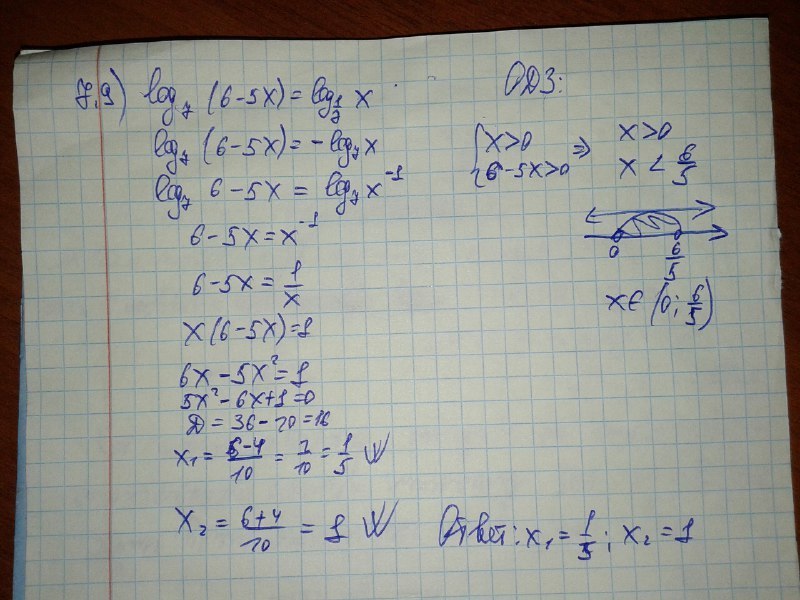 7,9) log₇ (6-5x) = log_{1/7} x
log₇ (6-5x) = -log₇ x
log₇ 6-5x = log₇ x⁻¹
6-5x = x⁻¹
6-5x = 1/x
x(6-5x)=1
6x-5x²=1
5x²-6x+1=0
D=36-20=16
x₁ = (6-4)/10 = 2/10 = 1/5 \/
x₂ = (6+4)/10 = 1 \/
ОДЗ:
{ x>0 ⇒ x>0
{ 6-5x>0 x < 6/5
0 6/5
x∈(0; 6/5)
Ответ: x₁ = 1/5; x₂ = 1